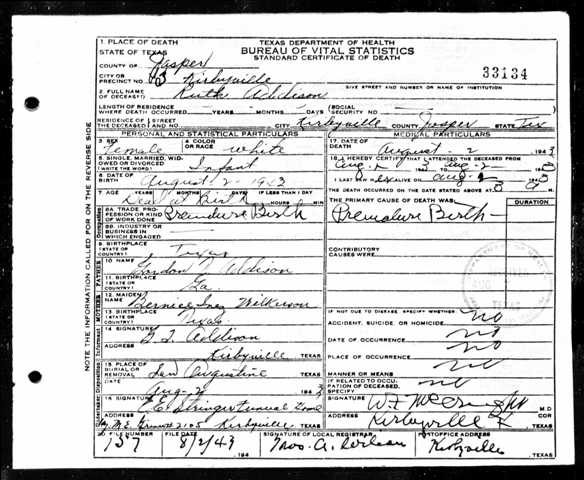 TEXAS DEPARTMENT OF HEALTH
BUREAU OF VITAL STATISTICS
STANDARD CERTIFICATE OF DEATH
1 PLACE OF DEATH
STATE OF TEXAS
COUNTY OF Jasper
CITY OR PRECINCT NO. 3 Kirbyville
33134
GIVE STREET AND NUMBER OR NAME OF INSTITUTION
2. FULL NAME OF DECEASED Ruth Addison
LENGTH OF RESIDENCE WHERE DEATH OCCURRED YEARS MONTHS DAYS SOCIAL SECURITY NO.
RESIDENCE OF THE DECEASED STREET NO. CITY Kirbyville COUNTY Jasper STATE Tex
PERSONAL AND STATISTICAL PARTICULARS
MEDICAL PARTICULARS
3 SEX Female 4 COLOR OR RACE White
17. DATE OF DEATH August 2 1943
5 SINGLE, MARRIED, WIDOWED OR DIVORCED (WRITE THE WORD) Infant
18. I HEREBY CERTIFY THAT I ATTENDED THE DECEASED FROM
Aug 2
6 DATE OF BIRTH August 2 1943
ALIVE ON Aug 2
7 AGE YEARS MONTHS DAYS IF LESS THAN 1 DAY
HOURS MIN
THE DEATH OCCURRED ON THE DATE STATED ABOVE AT
8A TRADE, PROFESSION OR KIND OF WORK DONE Premature Birth
THE PRIMARY CAUSE OF DEATH WAS: DURATION
Premature Birth
8B. INDUSTRY OR BUSINESS IN WHICH ENGAGED
9 BIRTHPLACE (STATE OR COUNTRY) Texas
CONTRIBUTORY CAUSES WERE:
10 NAME Gordon Addison
11. BIRTHPLACE (STATE OR COUNTRY) Ga
12 MAIDEN NAME Bernice Inez Wilkerson
13. BIRTHPLACE (STATE OR COUNTRY) Texas
IF NOT DUE TO DISEASE, SPECIFY WHETHER:
ACCIDENT, SUICIDE, OR HOMICIDE no
DATE OF OCCURRENCE no
14 SIGNATURE Addison
ADDRESS Kirbyville TEXAS
PLACE OF OCCURRENCE no
15 PLACE OF BURIAL OR REMOVAL San Augustine TEXAS
MANNER OR MEANS no
DATE Aug 2 1943
IF RELATED TO OCCUPATION OF DECEASED, SPECIFY no
16 SIGNATURE E.E. Stringer Funeral Home
M.D.
ADDRESS Kirbyville TEXAS
ADDRESS Kirbyville TEXAS
20 FILE NUMBER 737 FILE DATE 8/2/43 SIGNATURE OF LOCAL REGISTRAR POSTOFFICE ADDRESS Kirbyville
NOTE THE INFORMATION CALLED FOR ON THE REVERSE SIDE